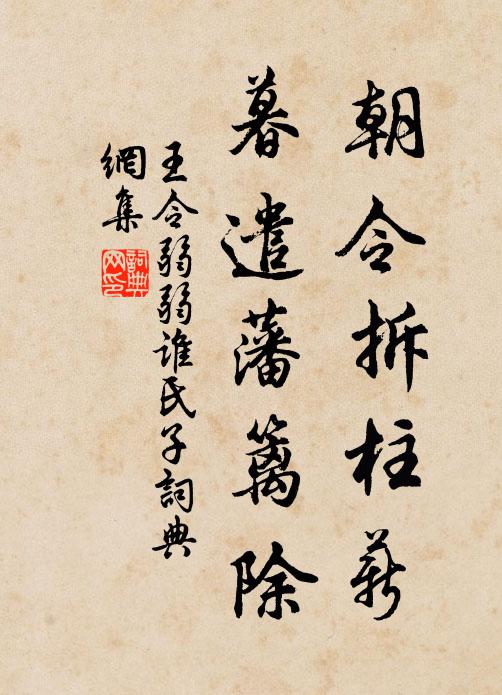 朝令拆柱薪
暮遣藩篱除
王令弱弱谁氏子词典
網集
詞典
网印